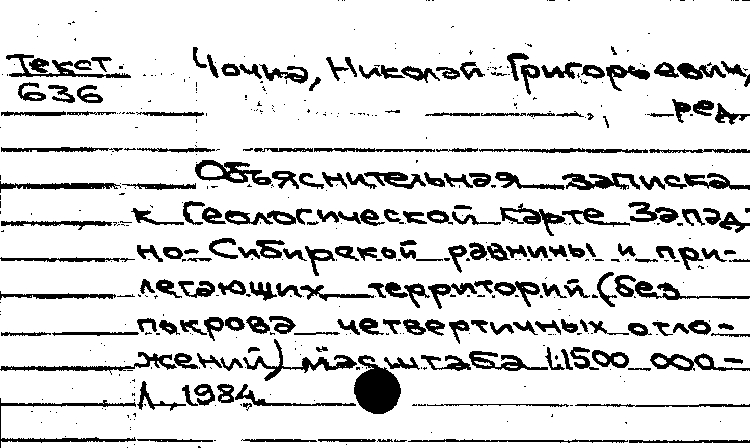 Текст
636
Чочиа, Николай Григорьевич,
ред.
Объяснительная записка
к Геологической карте Запад-
но-Сибирской равнины и при-
легающих территорий (без
покрова четвертичных отло-
жений) масштаба 1:1500 000-
Л., 1984.